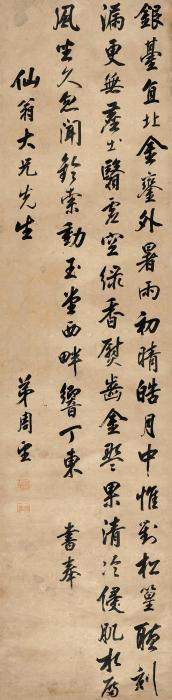 銀臺直北金鑾外暑雨初晴皓月中惟對松篁聽刻
漏更無塵土翳虛空綠香熨齒果清冷侵肌水殿
風坐久忽聞鈴索動玉堂西畔響丁東 書奉
仙翁大兄先生 弟周